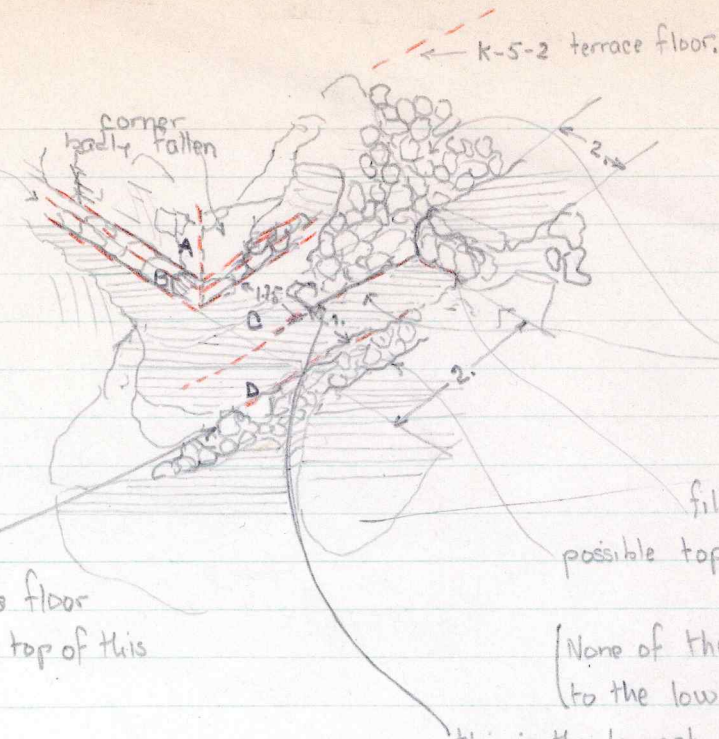 K-5-2 terrace floor.
corner
badly fallen
2.
A
B
1.75
C
1.
D
2.
fil
possible top
floor
top of this
None of th
to the low
this is the lowest